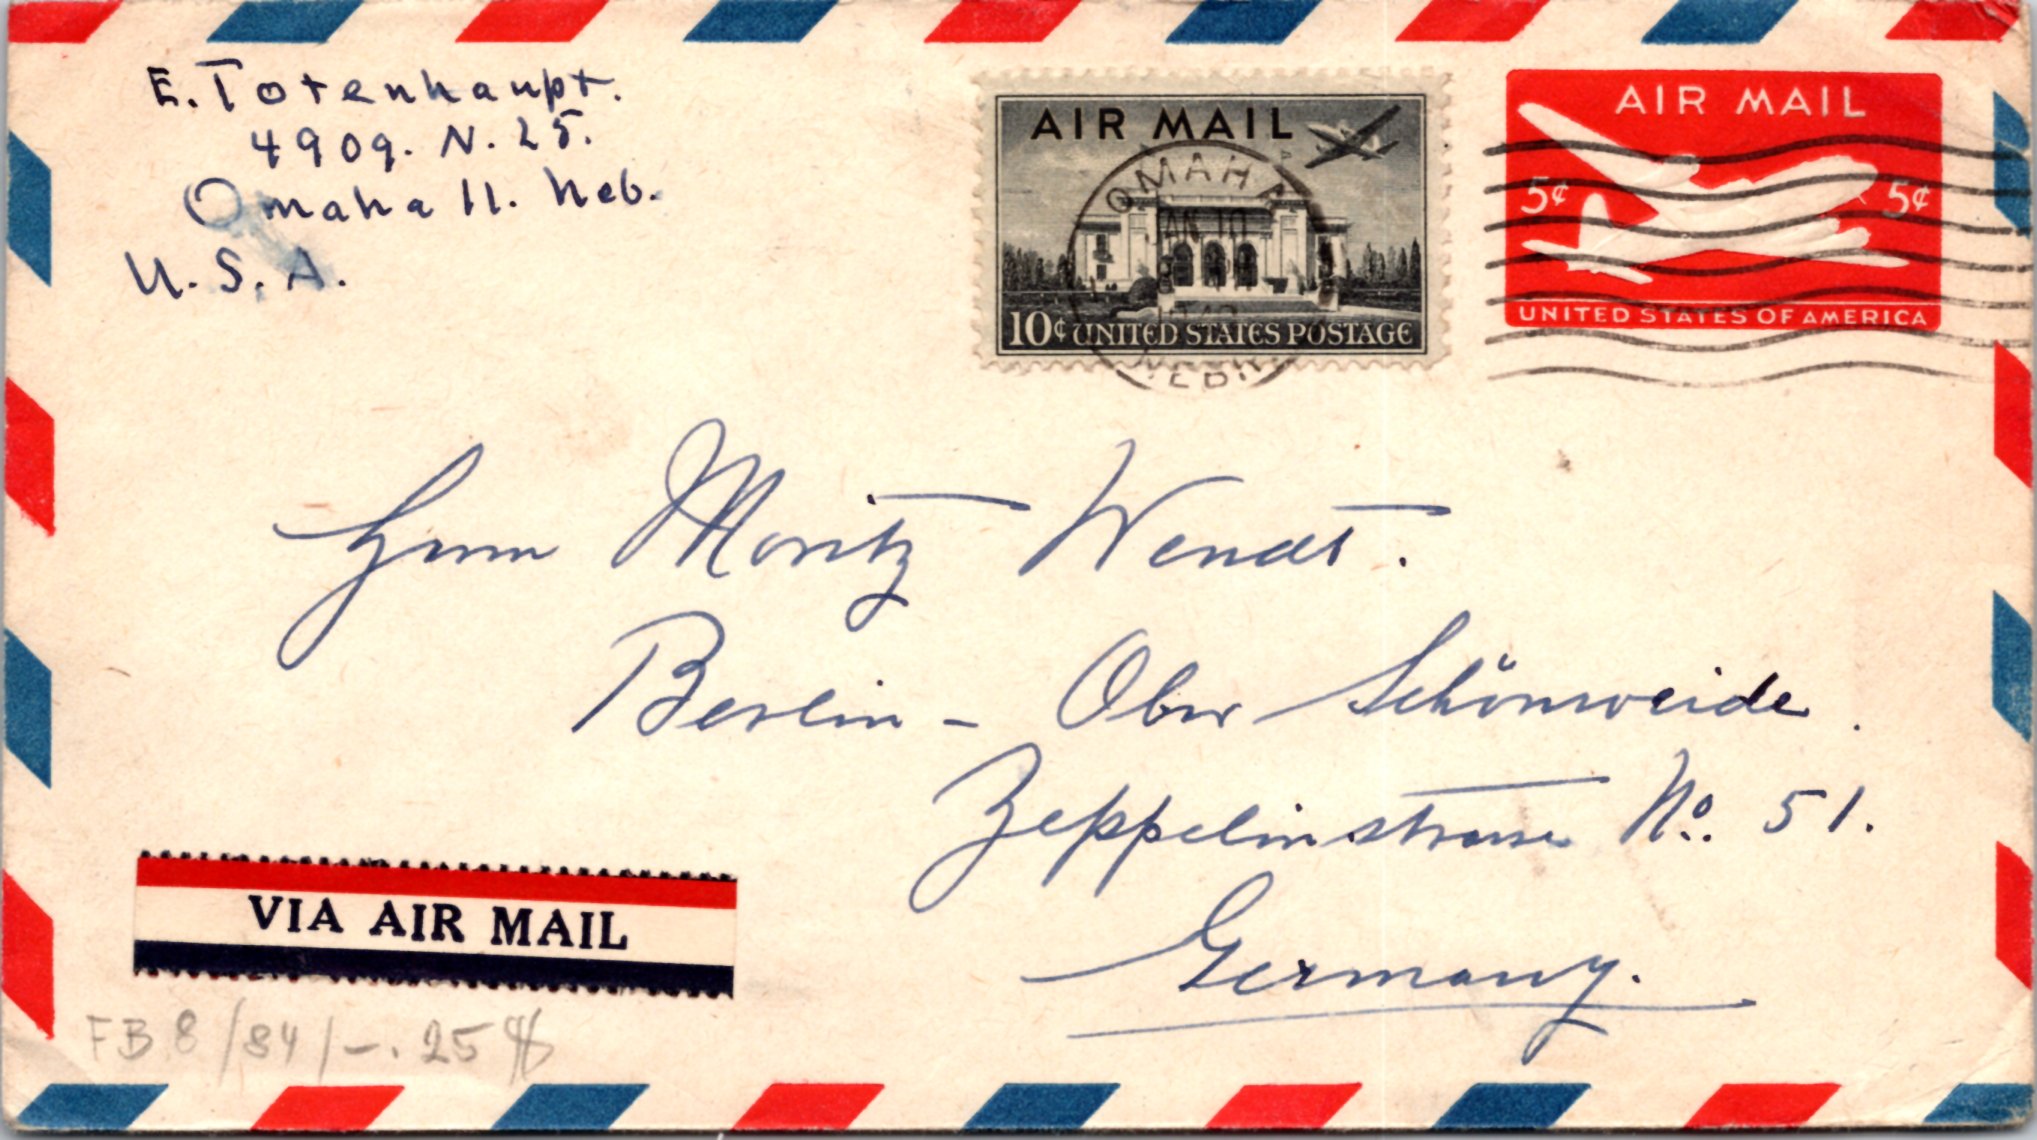 E. Totenhaupt.
4909. N. 25.
Omaha 11. Neb.
U. S. A.
AIR MAIL
10¢ UNITED STATES POSTAGE
OMAHA
JAN 10
NEBR.
AIR MAIL
5¢ 5¢
UNITED STATES OF AMERICA
Herrn Moritz Wendt.
Berlin - Ober Schöneweide.
Zeppelinstrasse No. 51.
Germany.
VIA AIR MAIL
FB 8/84/-.25